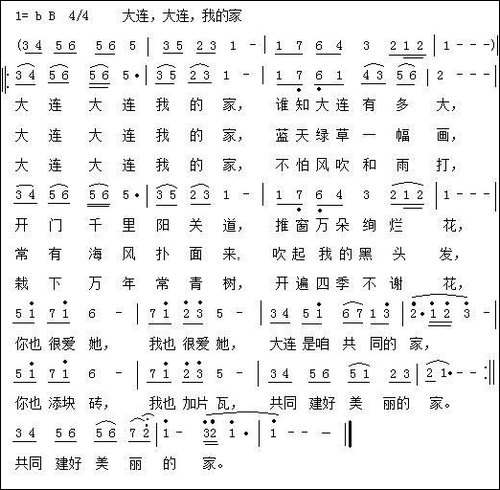 1= b B 4/4 大连,大连,我的家
(3 4 5 6 5 6 5 | 3 5 2 3 1 - | 1 7 6 4 3 2 1 2 | 1 - - -)
3 4 5 6 5 6 5 • | 3 5 2 3 1 - | 1 7 6 1 4 3 5 6 | 2 - - -
大 连 大 连 我 的 家, 谁 知 大 连 有 多 大,
大 连 大 连 我 的 家, 蓝 天 绿 草 一 幅 画,
大 连 大 连 我 的 家, 不 怕 风 吹 和 雨 打,
3 4 5 6 5 6 5 • | 3 5 2 3 1 - | 1 7 6 4 3 2 1 2 | 1 - - -
开 门 千 里 阳 关 道, 推 窗 万 朵 绚 烂 花,
常 有 海 风 扑 面 来, 吹 起 我 的 黑 头 发,
栽 下 万 年 常 青 树, 开 遍 四 季 不 谢 花,
5 1 7 1 6 - | 7 1 2 3 5 - | 3 4 5 1 6 7 1 3 | 2 • 1 2 3 -
你也 很爱 她, 我也 很爱 她, 大连 是咱 共 同的 家,
5 1 7 1 6 - | 7 1 2 3 5 - | 3 4 5 6 5 1 2 3 | 2 1 • - - :||
你也 添块 砖, 我也 加片 瓦, 共同 建好 美 丽的 家。
3 4 5 6 5 6 7 2 | 1 - 3 2 1 • | 1 - - - ||
共同 建好 美 丽 的 家。